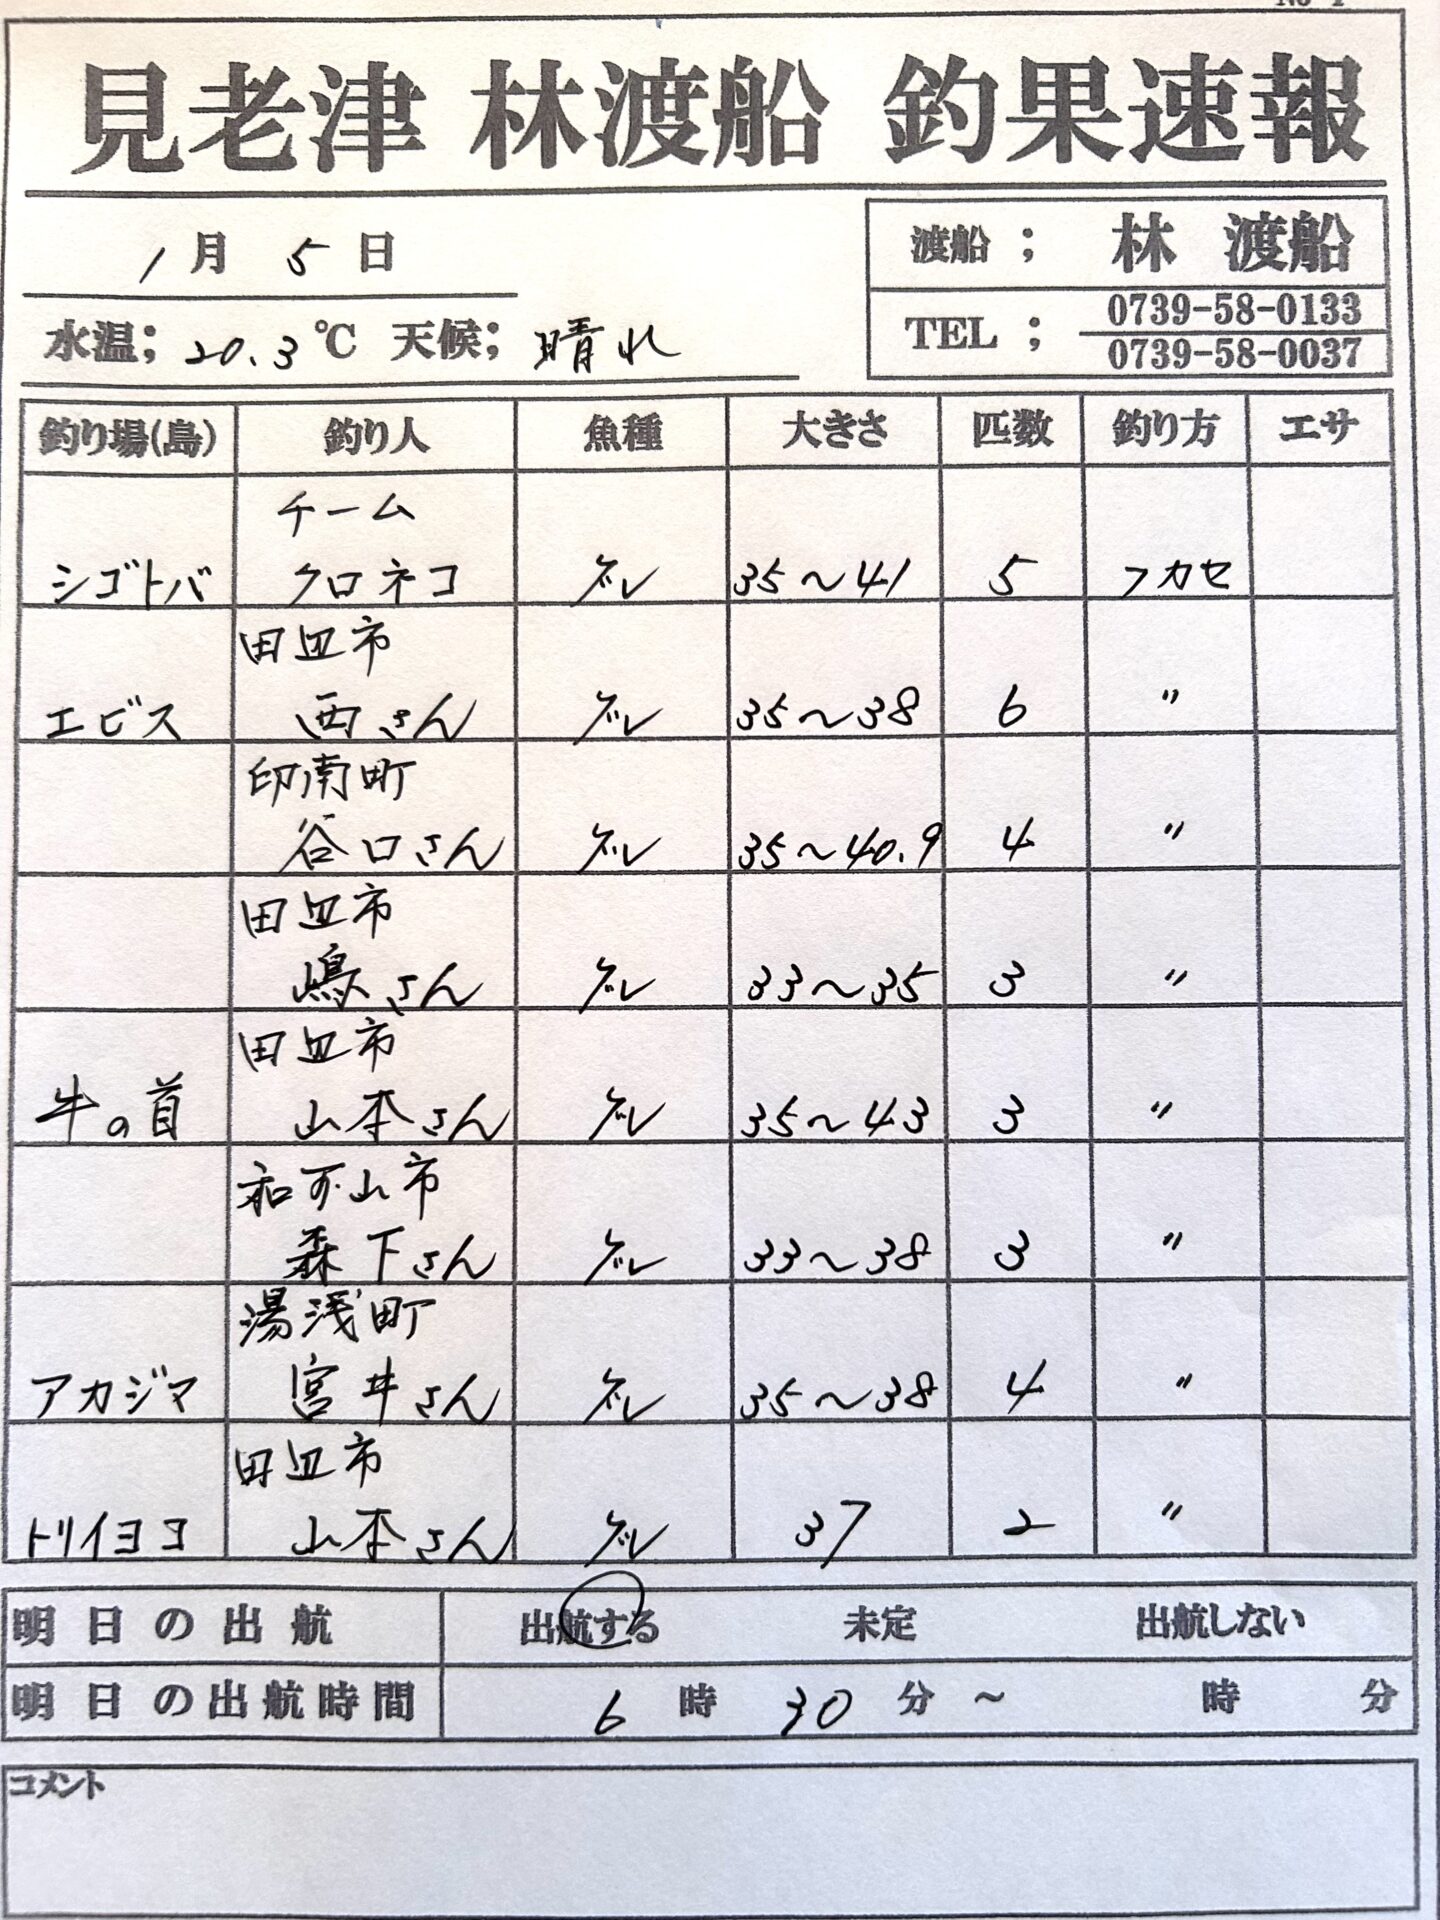 見老津 林渡船 釣果速報
1月 5日
渡船 ; 林 渡船
水温; 20.3 ℃ 天候; 晴れ
TEL ; 0739-58-0133
0739-58-0037
釣り場(島) 釣り人 魚種 大きさ 匹数 釣り方 エサ
チーム
シゴトバ クロネコ グレ 35～41 5 フカセ
田辺市
エビス 西さん グレ 35～38 6 〃
印南町
谷口さん グレ 35～40.9 4 〃
田辺市
嶋さん グレ 33～35 3 〃
田辺市
牛の首 山本さん グレ 35～43 3 〃
和可山市
森下さん グレ 33～38 3 〃
湯浅町
アカジマ 宮井さん グレ 35～38 4 〃
田辺市
トリイヨコ 山本さん グレ 37 2 〃
明日の出航 出航する 未定 出航しない
明日の出航時間 6 時 30 分 ～ 時 分
コメント